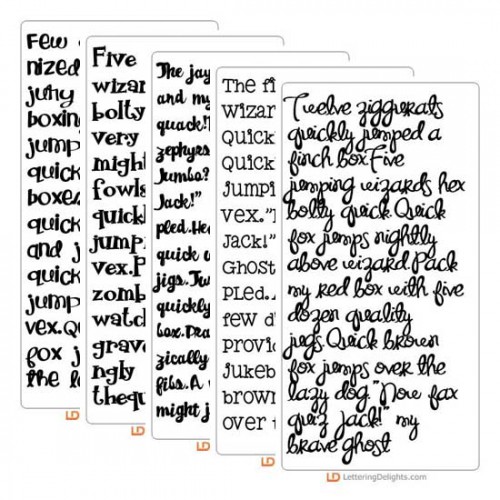 Few
nized
juhy
boxing
jump
quick
boxed
quick
and j
jump
vex.Qu
fox j
the l
Five
wizar
bolty
very
might
fowls
quickl
jump
vex.P
zomb
watc
grav
ngly
thequ
The jay
and my
quack!T
zephyrs
Jumbo?
Jack!"
pled.He
quick w
jigs.Tw
quickly
box.Dra
zically
fibs.A
might j
The fi
wizar
quick
Quick
jumpi
vex."T
Jack!"
Ghost
pled.
few d
provi
jukeb
brown
over t
Twelve ziggurats
quickly jumped a
finch box.Five
jumping wizards hex
bolty quick Quick
fox jumps nightly
above wizard.Pack
my red box with five
dozen quality
jugs.Quick brown
fox jumps over the
lazy dog."Now fax
quiz Jack!" my
brave ghost
LD
LD
LD
LD
LD LetteringDelights.com